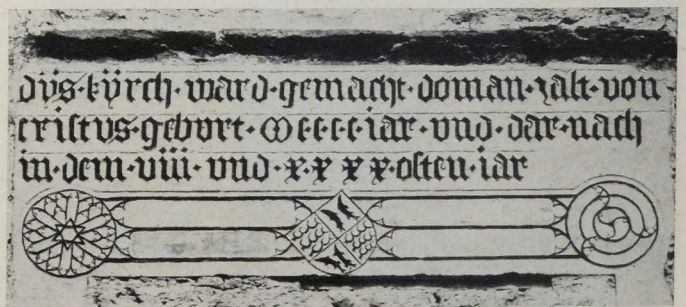 dÿs·kÿrch·ward·gemacht·doman·zalt·von·
cristvs·gebvrt·M·c·c·c·c·iar·vnd·dar·nach
in·dem·viii·vnd·x·x·x·x·osten·iar